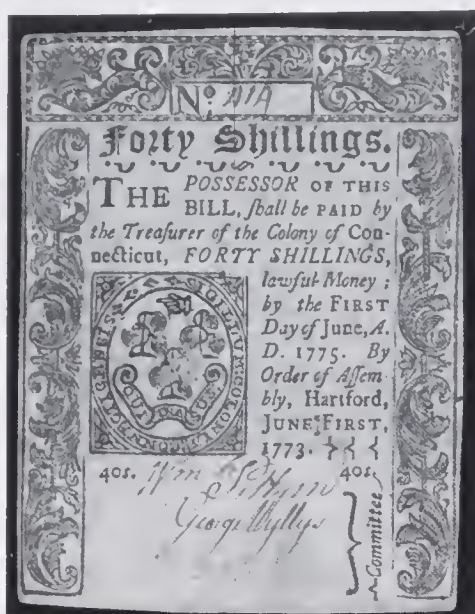 No.
Forty Shillings.
THE POSSESSOR OF THIS
BILL, ſhall be PAID by
the Treaſurer of the Colony of Con-
necticut, FORTY SHILLINGS,
lawful Money ;
by the FIRST
Day of June, A.
D. 1775. By
Order of Aſſem-
bly, Hartford,
JUNE FIRST,
1773.
SIGILLUM COLON
40s. Wm 40s.
George Wyllys
Committee